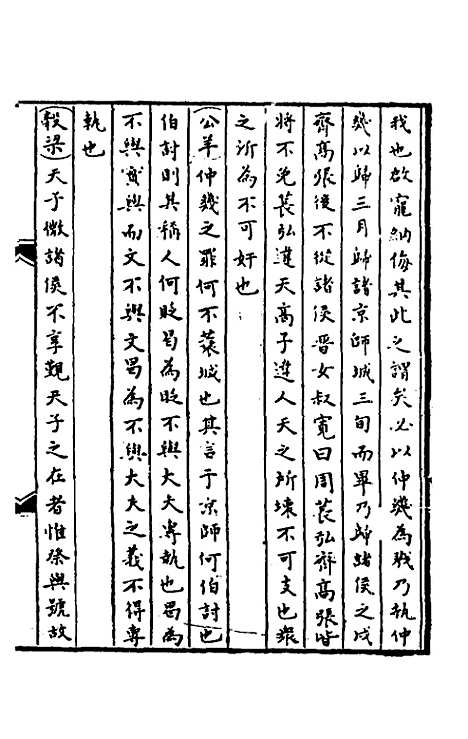 我也啟寵納侮其此之謂矣必以仲幾為戮乃執仲
幾以歸三月歸諸京師城三旬而畢乃歸諸侯之戍
齊高張後不從諸侯晉女叔寬曰周萇弘齊高張皆
將不免萇弘違天高子違人天之所壞不可支也眾
之所為不可奸也
(公羊)仲幾之罪何不蓑城也其言于京師何伯討也
伯討則其稱人何貶曷為貶不與大夫專執也曷為
不與實與而文不與文曷為不與大夫之義不得專
執也
(穀梁)天子微諸侯不享覲天子之在者惟祭與號故